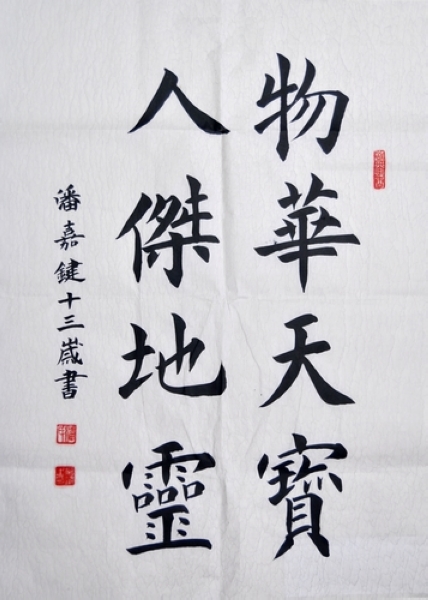 物華天寶
人傑地靈
潘嘉鍵十三歲書